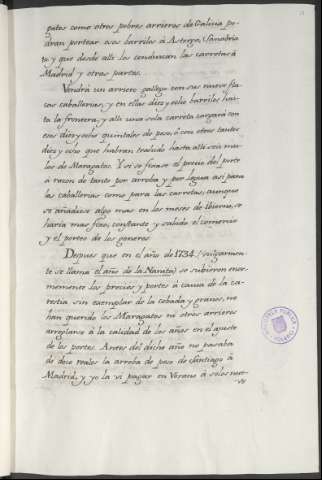 gatos como otros pobres arrieros de Galicia po-
dran portear esos barriles á Astorga, Sanabria
&c y que desde alli los conduzcan las carretas á
Madrid y otras partes.
Vendrá un arriero gallego con sus nueve fla
cas caballerias, y en ellas diez y ocho barriles has-
ta la frontera, y alli una sola carreta cargará con
esos diez y ocho quintales de peso, ó con otros tantos
diez y ocho que habran traslado hasta alli seis mu-
los de Maragatos. Y si se fixase el precio del porte
á razon de tanto por arroba y por legua asi para
las caballerias como para las carretas, aunque
se añadiese algo mas en los meses de Ibierno, se
haria mas fixo, constante y valido el comercio
y el porteo de los generos.
Despues que en el año de 1734. (vulgarmen-
te se llama el año de la Nanita) se subieron enor-
memente los precios y portes á causa de la ca-
restia sin exemplar de la cebada y granos, no
han querido los Maragatos ni otros arrieros
arreglarse á la calidad de los años en el ajuste
de los portes. Antes del dicho año no pasaba
de doce reales la arroba de peso de Santiago á
Madrid, y yo la vi pagar en Verano á solos nue-
ve